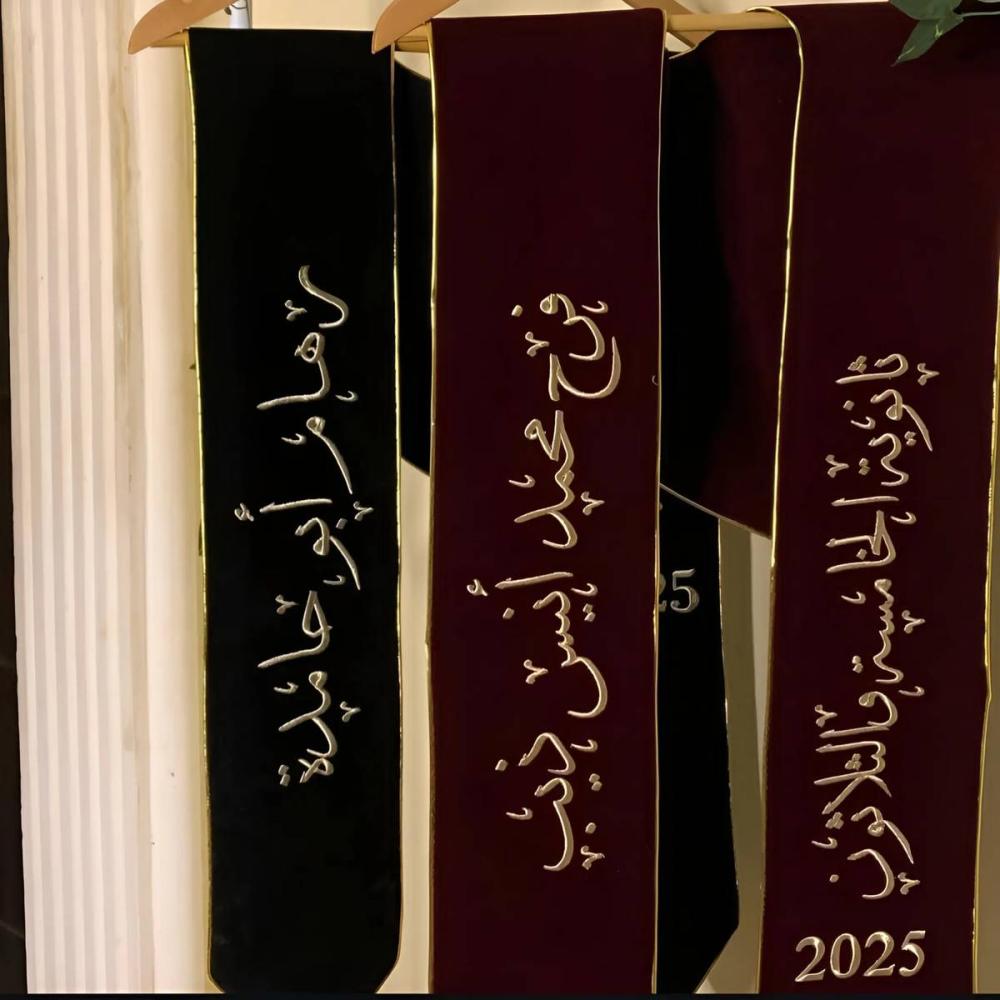 رهام أبو حامدة
فرح محمد أنس ذيب
ثانوية الخامسة والثلاثون
2025
25